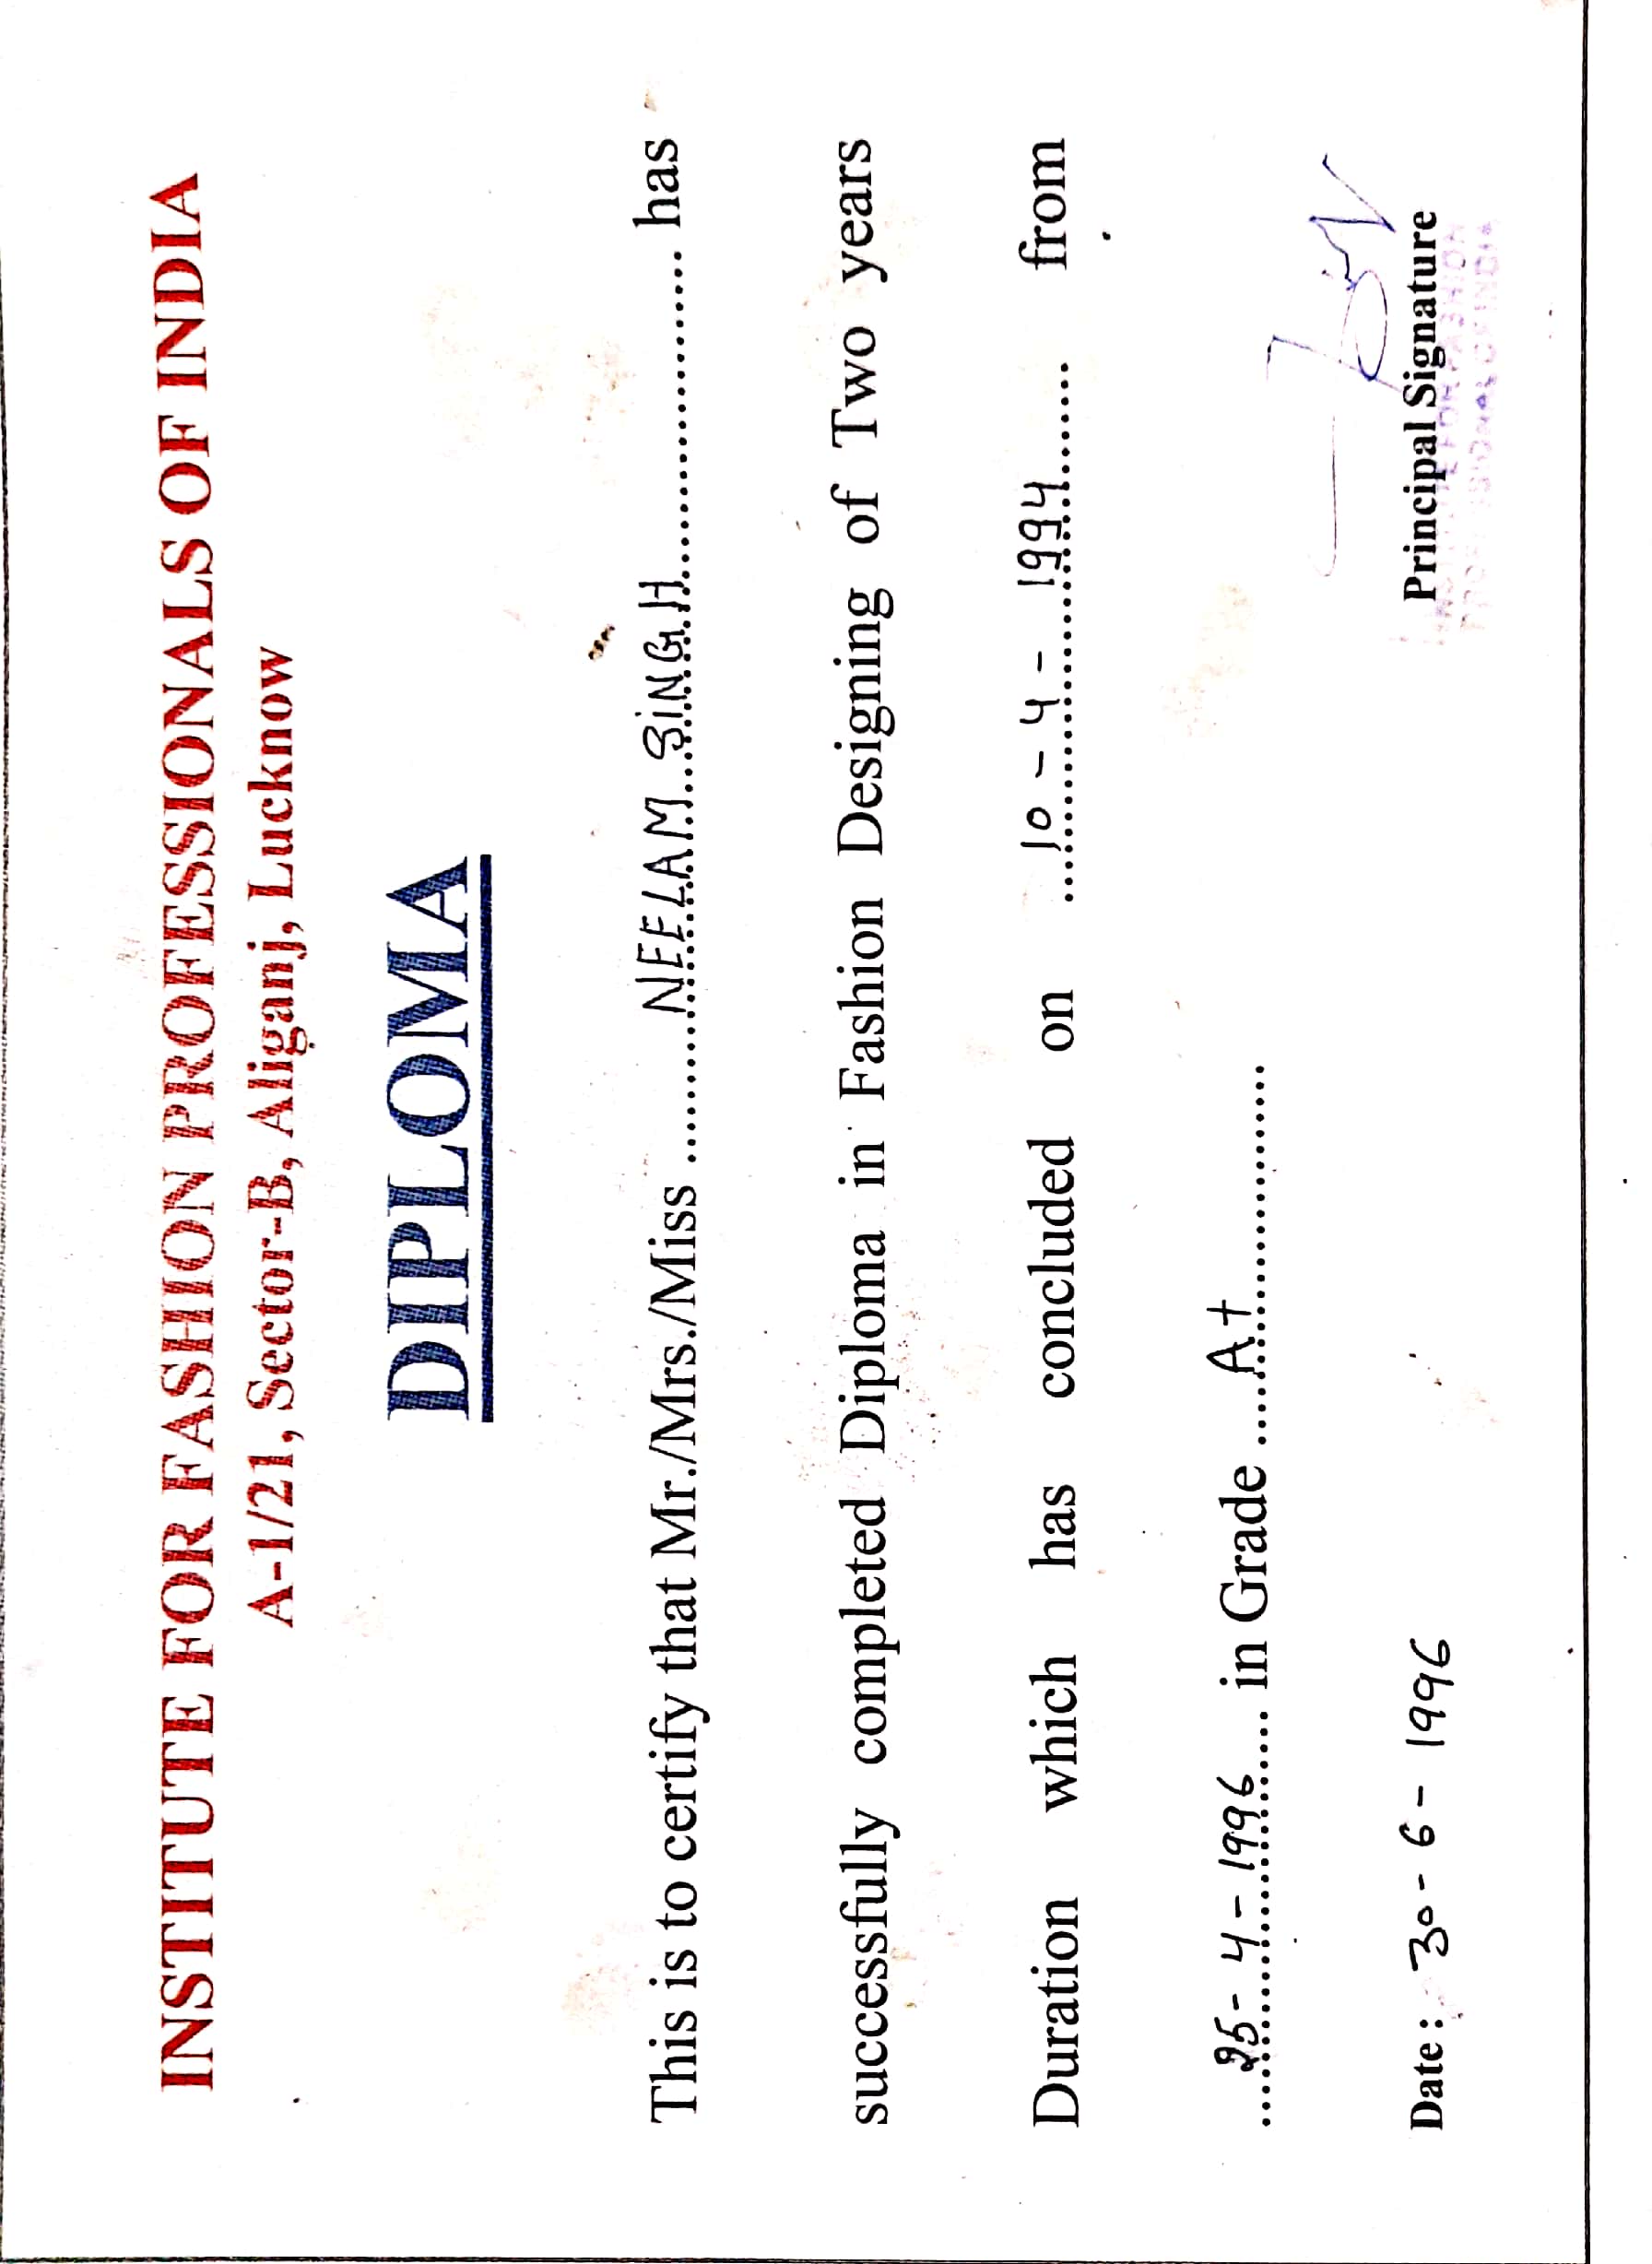 INSTITUTE FOR FASHION PROFESSIONALS OF INDIA
A-1/21, Sector-B, Aliganj, Lucknow
DIPLOMA
This is to certify that Mr./Mrs./Miss ............NEELAM SINGH........................ has
successfully completed Diploma in Fashion Designing of Two years
Duration which has concluded on ....10-4-1994........ from
....25-4-1996..... in Grade ......A+....................
Date : 30-6-1996
Principal Signature